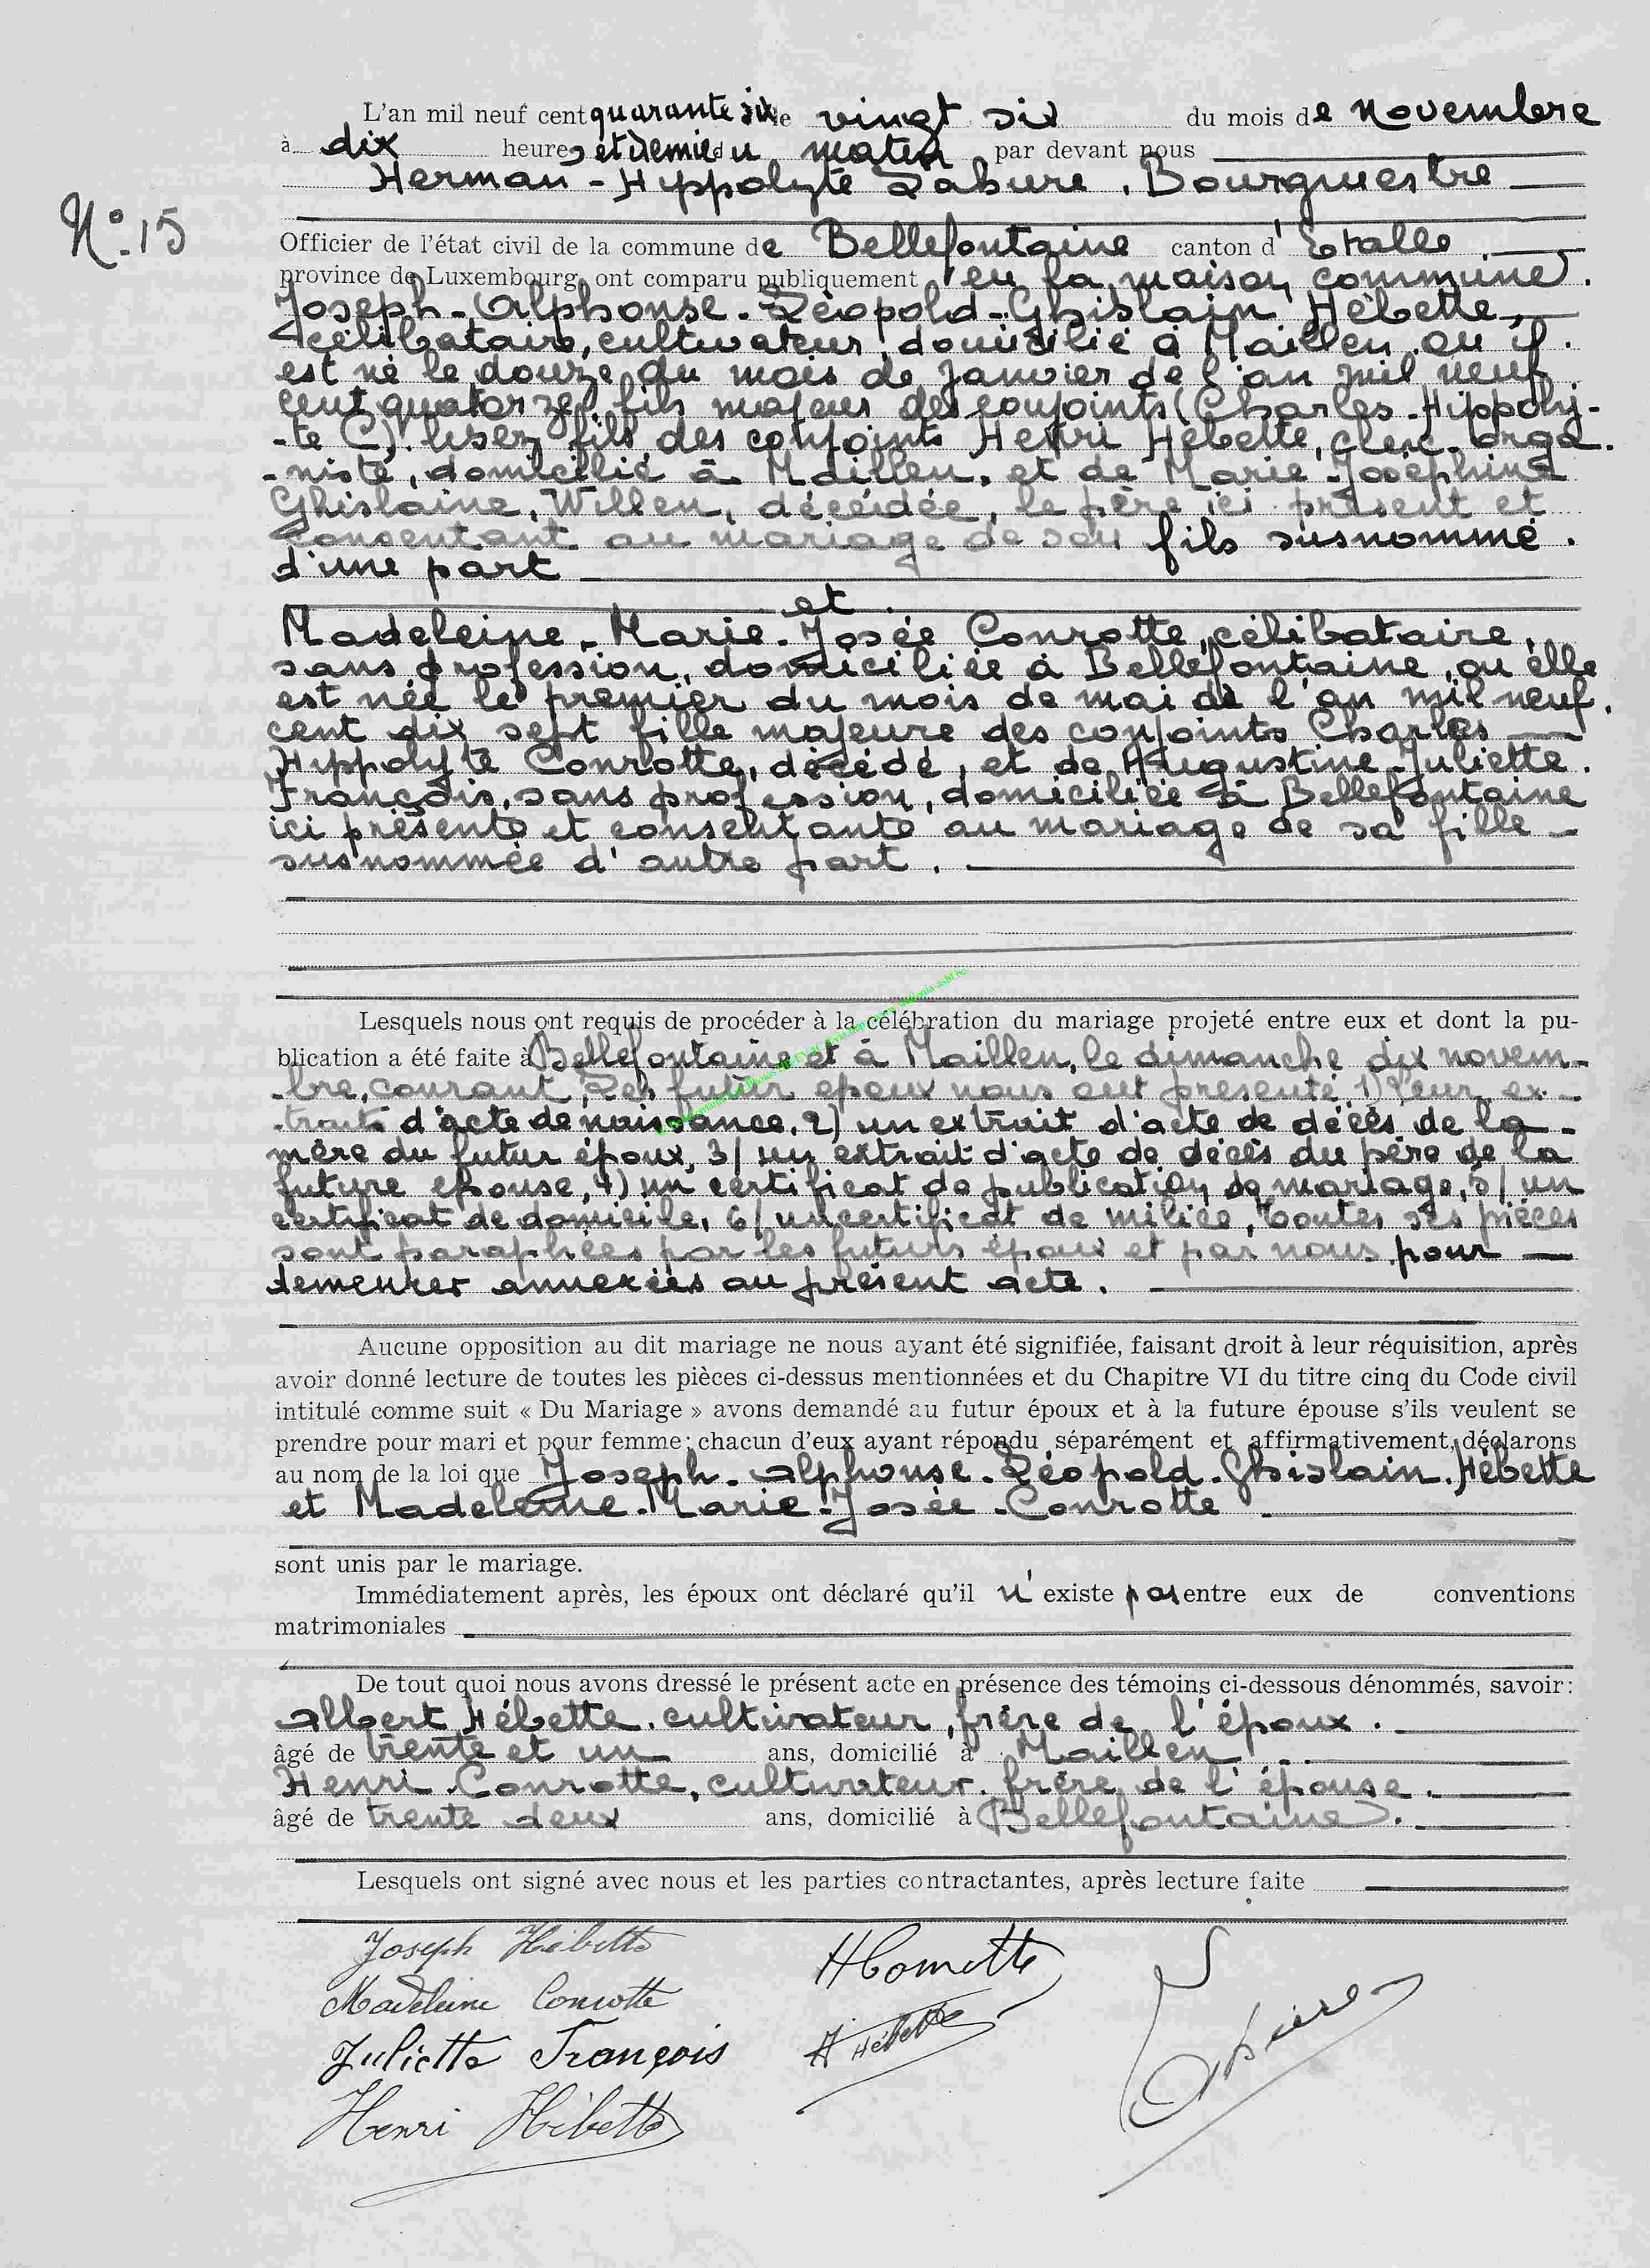 L'an mil neuf cent quarante six le vingt six du mois de Novembre
à dix heures et demie du matin par devant nous
Herman-Hippolyte Labure, Bourgmestre
N° 15
Officier de l'état civil de la commune de Bellefontaine canton d'Etalle
province de Luxembourg ont comparu publiquement en la maison commune.
Joseph-Alphonse-Léopold-Ghislain Hébette,
célibataire, cultivateur, domicilié à Maillen, ou il
est né le douze du mois de janvier de l'an mil neuf
cent quatorze, fils majeur des conjoints (Charles-Hippoly-
-te C). lisez fils des conjoints Henri Hébette, clerc-orga-
-niste, domicilié à Maillen, et de Marie-Joséphine
Ghislaine, Willem, décédée, le père ici présent et
consentant au mariage de son fils susnommé.
d'une part
et
Madeleine-Marie-Josée Conrotte, célibataire,
sans profession, domiciliée à Bellefontaine, ou elle
est née le premier du mois de mai de l'an mil neuf.
cent dix sept fille majeure des conjoints Charles
Hippolyte Conrotte, décédé, et de Augustine-Juliette.
François, sans profession, domiciliée à Bellefontaine
ici présente et consentante au mariage de sa fille
susnommée d'autre part.
Lesquels nous ont requis de procéder à la célébration du mariage projeté entre eux et dont la pu-
blication a été faite à Bellefontaine et à Maillen, le dimanche dix novem-
-bre, courant, Les futur epoux nous ont présenté 1) leur ex-
-traits d'acte de naissance, 2) un extrait d'acte de décès de la
mère du futur époux, 3/ un extrait d'acte de décès du père de la
future epouse, 4) un certificat de publication de mariage, 5/ un
certificat de domicile, 6/ un certificat de milice, toutes ses pièces
sont paraphées par les futurs époux et par nous pour
demeurer annexées au présent acte.
Aucune opposition au dit mariage ne nous ayant été signifiée, faisant droit à leur réquisition, après
avoir donné lecture de toutes les pièces ci-dessus mentionnées et du Chapitre VI du titre cinq du Code civil
intitulé comme suit « Du Mariage » avons demandé au futur époux et à la future épouse s'ils veulent se
prendre pour mari et pour femme; chacun d'eux ayant répondu séparément et affirmativement, déclarons
au nom de la loi que Joseph-Alphonse-Léopold-Ghislain. Hébette
et Madeleine-Marie-Josée-Conrotte
sont unis par le mariage.
Immédiatement après, les époux ont déclaré qu'il n'existe pas entre eux de conventions
matrimoniales
De tout quoi nous avons dressé le présent acte en présence des témoins ci-dessous dénommés, savoir:
Albert Hébette, cultivateur, frère de l'époux.
âgé de trente et un ans, domicilié à Maillen
Henri Conrotte, cultivateur, frère de l'épouse.
âgé de trente deux ans, domicilié à Bellefontaine.
Lesquels ont signé avec nous et les parties contractantes, après lecture faite
Joseph Hébette
HConrotte
Madeleine Conrotte
Juliette François
A Hébette
Henri Hébette